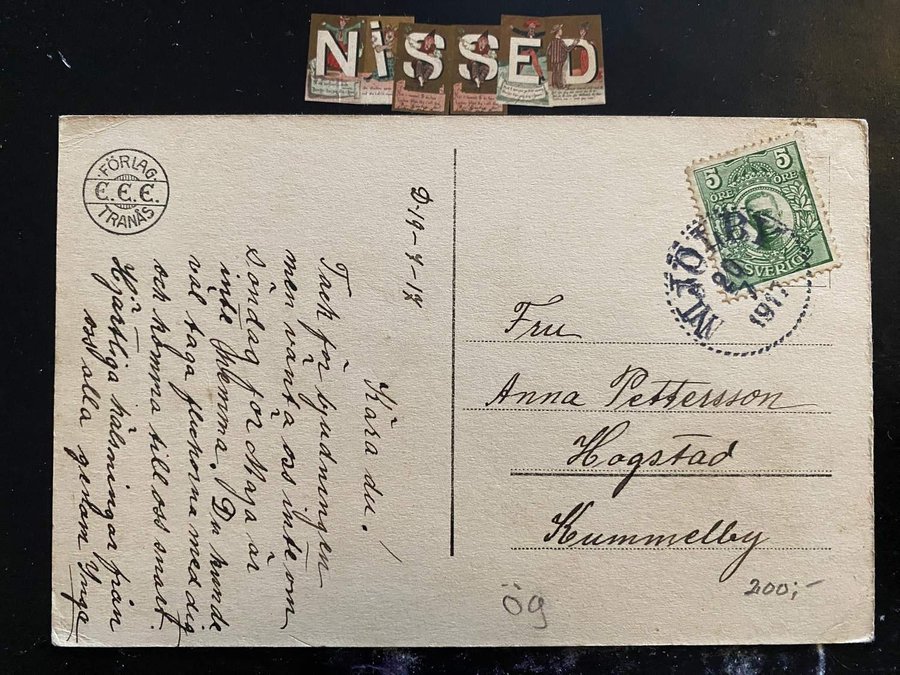 NiSSED
FÖRLAG
E.E.E.
TRANÅS
D. 19-4-17
Kära du!
Tack för bjudningen
men vänta oss inte om
söndag för Maja är
inte hemma. Du kunde
väl taga flickorna med dig
och komma till oss snart.
Hjärtliga hälsningar från
oss alla genom Ynga
5 5
ÖRE ÖRE
SVERIGE
MJÖLBY
20
1917
Fru
Anna Pettersson
Hogstad
Kummelby
Ög
200:-